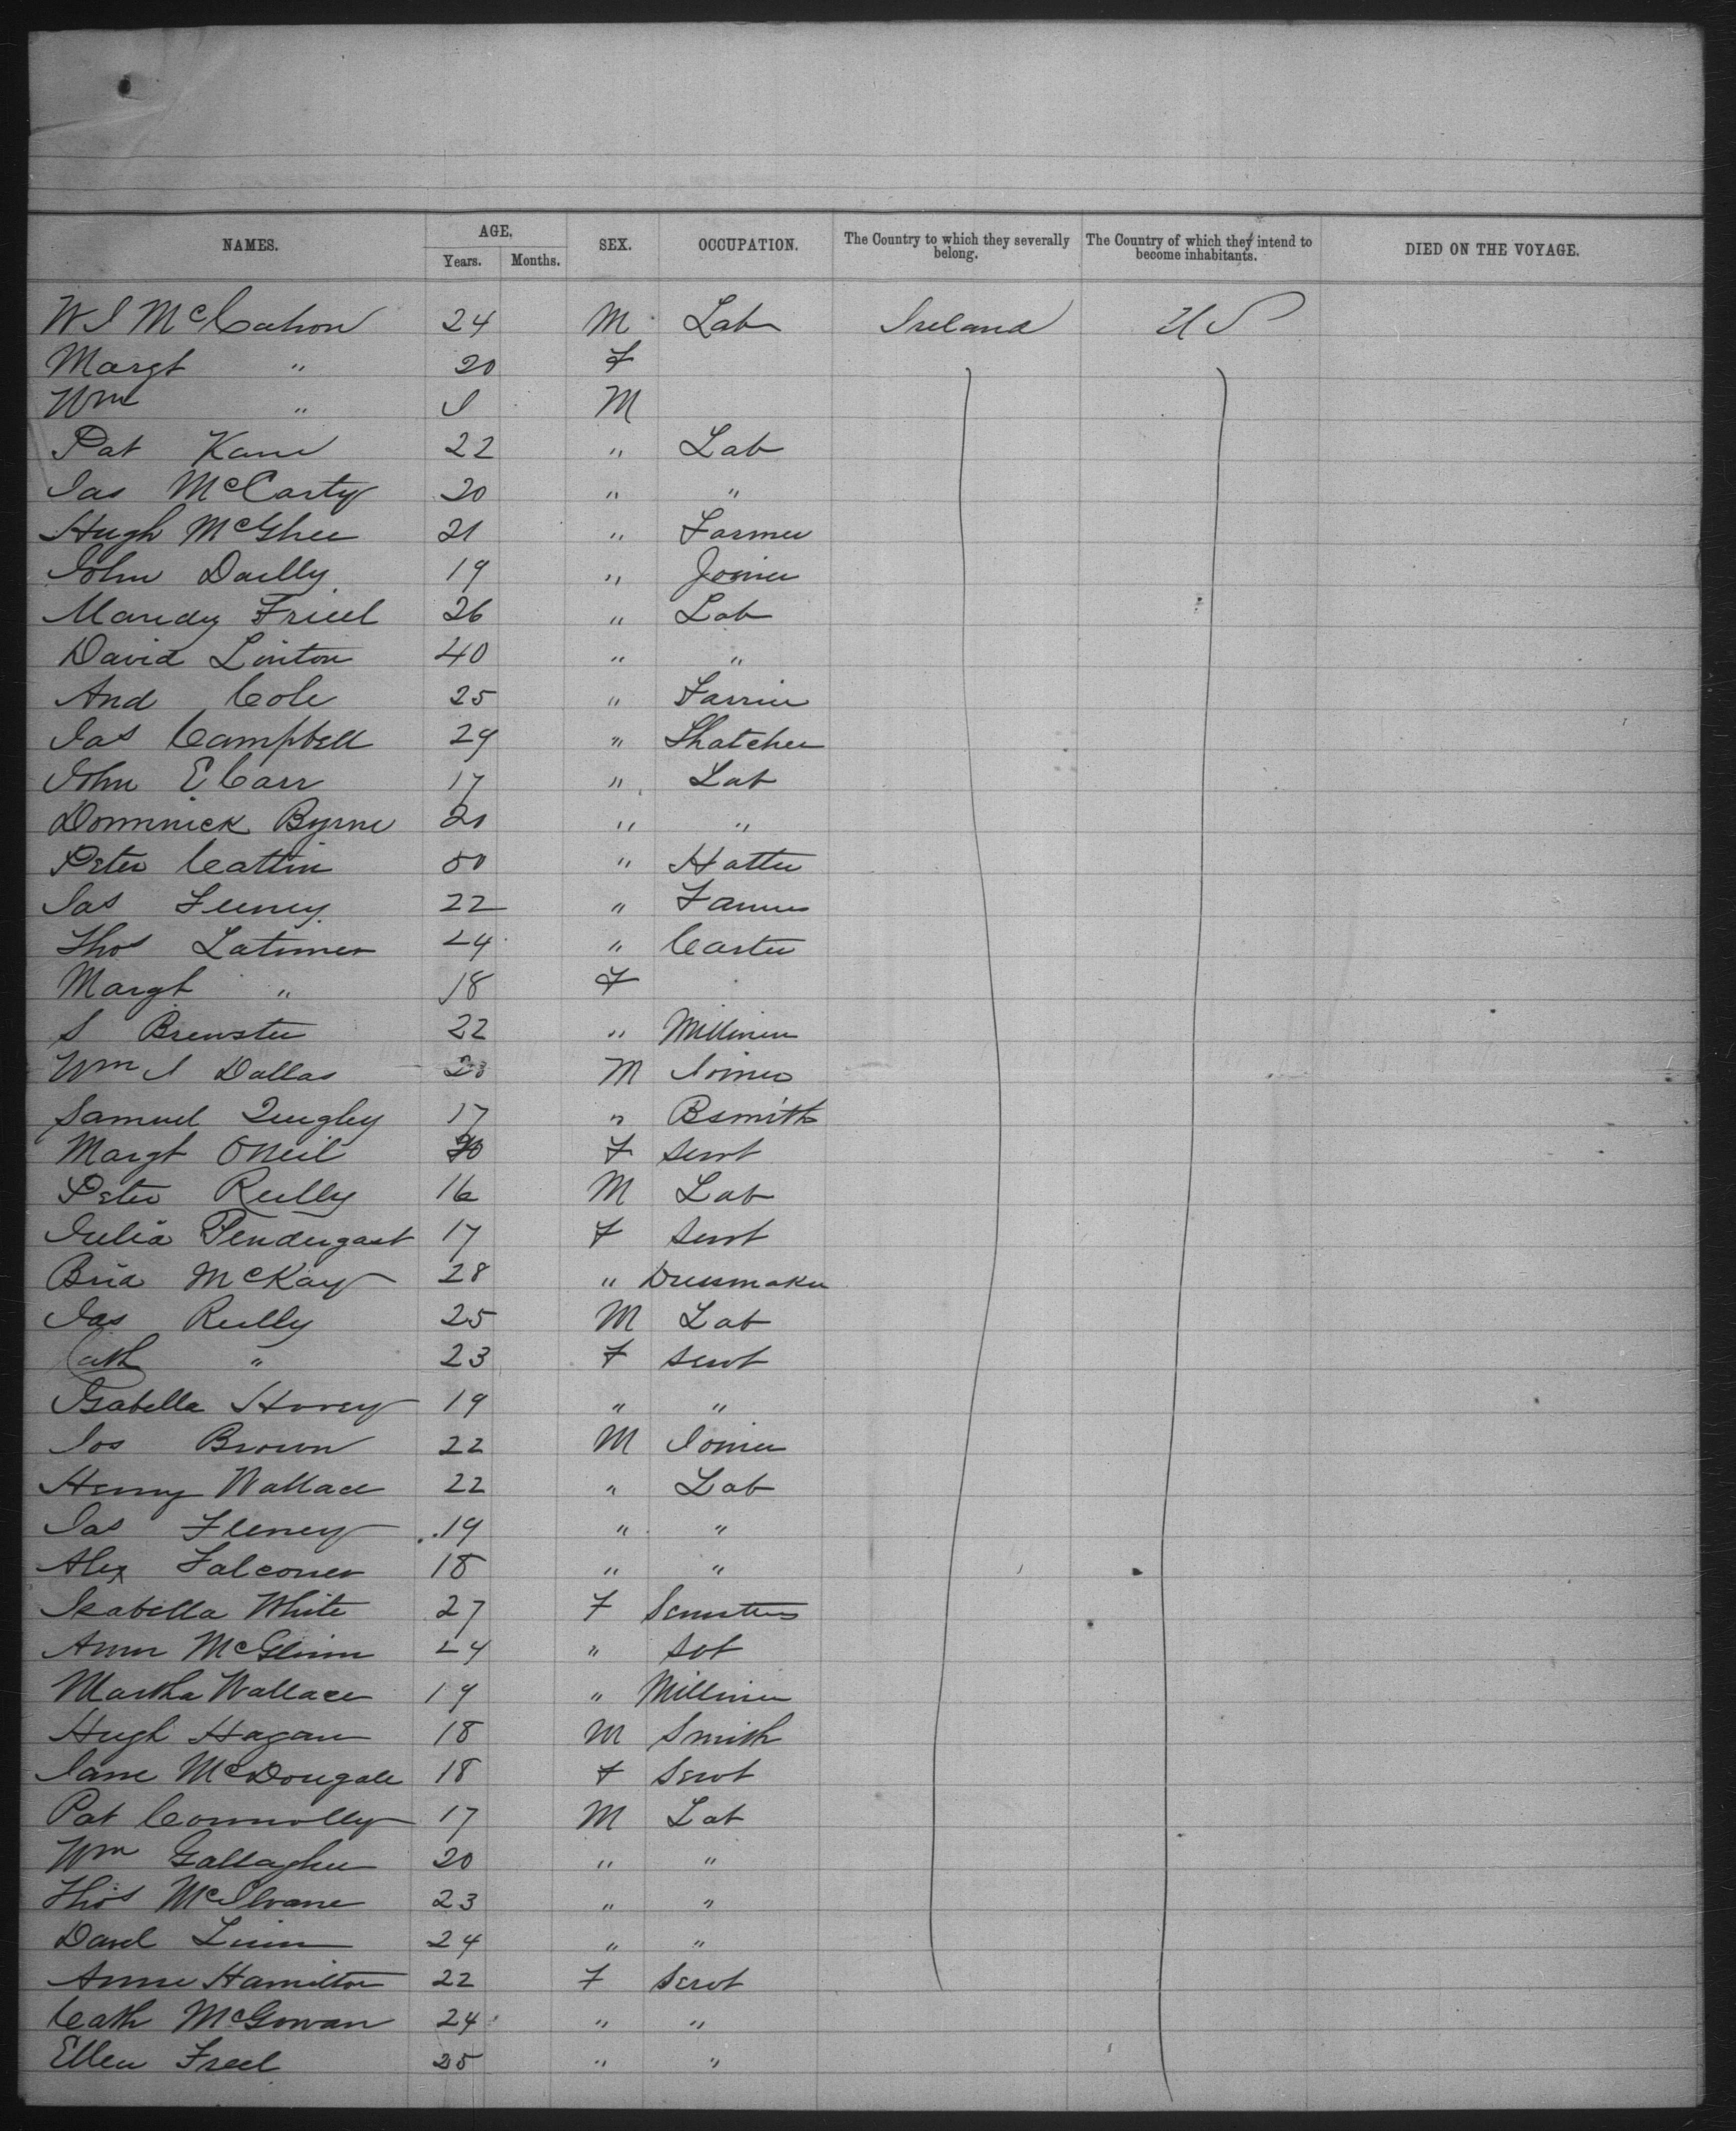 NAMES. AGE. SEX. OCCUPATION. The Country to which they severally belong. The Country of which they intend to become inhabitants. DIED ON THE VOYAGE.
Years. Months.
W J McCahon 24 M Lab Ireland U S
Margt " 20 F
Wm " 1 M
Pat Kane 22 " Lab
Jas McCarty 20 " "
Hugh McGhee 21 " Farmer
John Dailly 19 " Joiner
Friel 26 " Lab
David Linton 40 " "
And Cole 25 " Farrier
Jas Campbell 29 " Thatcher
John E Carr 17 " Lab
Domnick Byrne 20 " "
Peter Cattin 50 " Hatter
Jas Feeney 22 " Farmer
Thos Latimer 24 " Carter
Margt " 18 F
S Brewster 22 " Milliner
Wm J Dallas M Joiner
Samuel Quigley 17 " Bsmith
Margt ONeil F Servt
Peter Reilly 16 M Lab
Julia Pendergast 17 F Servt
Brid McKay 28 " Dressmaker
Jas Reilly 25 M Lab
Cath " 23 F Servt
Isabella 19 " "
Jos Brown 22 M Joiner
Henry Wallace 22 " Lab
Jas Feeney 19 " "
Alex Falconer 18 " "
Isabella White 27 F Semstress
Ann McGlinn 24 " Svt
Martha Wallace 19 " Milliner
Hugh Hagan 18 M Smith
Jane McDougall 18 F Servt
Pat Connolly 17 M Lab
Wm Gallagher 20 " "
Thos McIlvane 23 " "
Danl Linn 24 " "
Annie Hamilton 22 F Servt
Cath McGowan 24 " "
Ellen Freel 25 " "